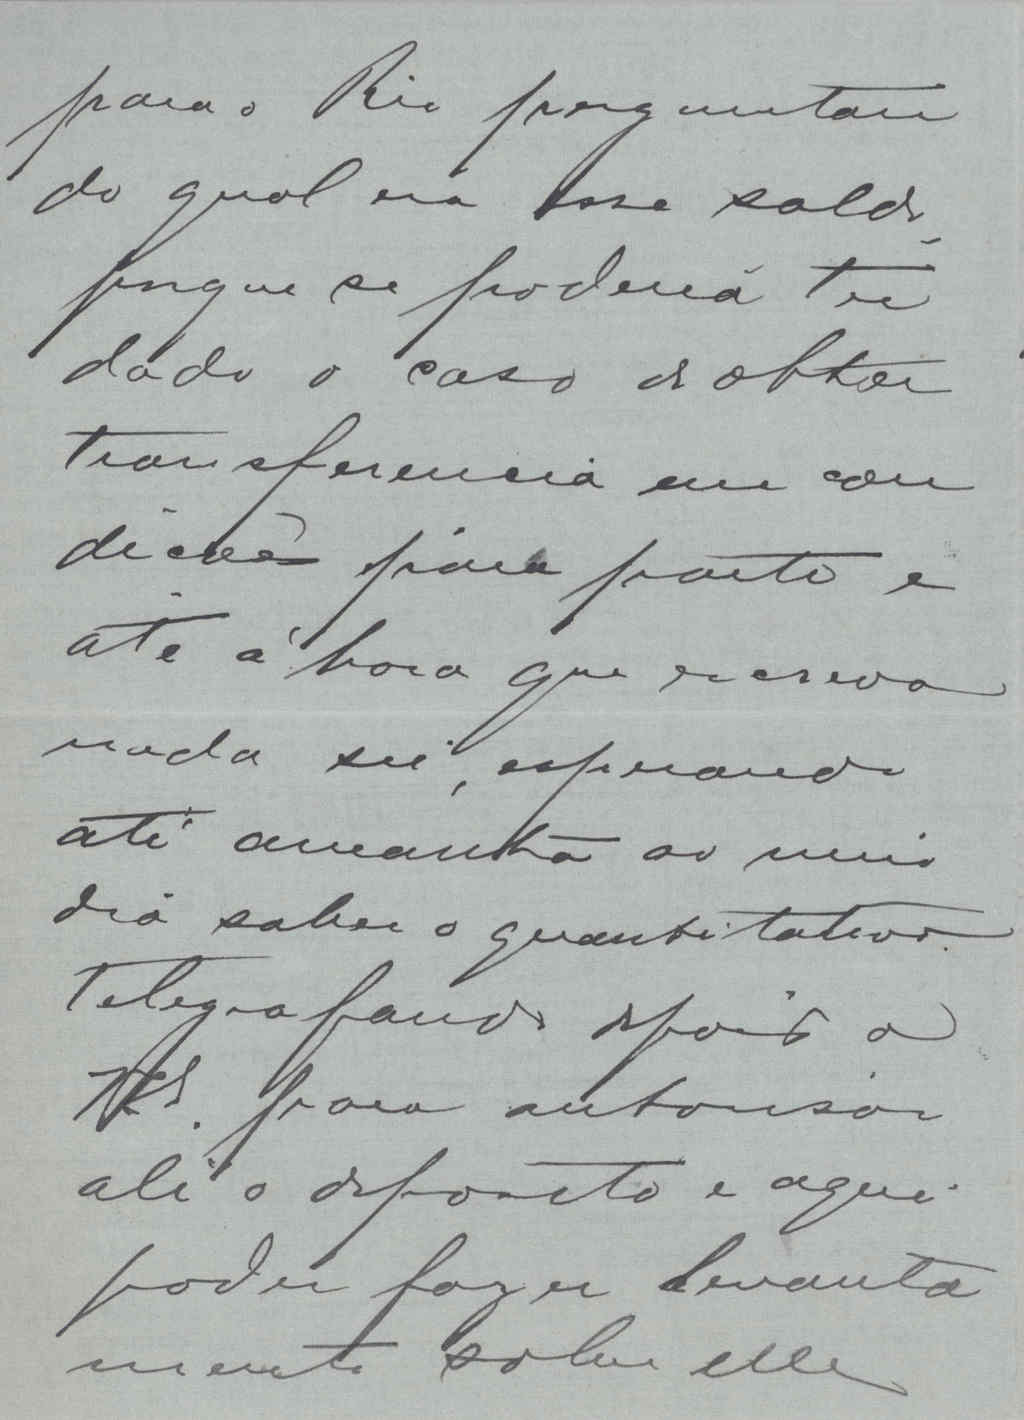 para o Rio perguntan
do qual era esse saldo,
porque se poderá ter
dado o caso de obter
transferencia em con
dicões para parte e
até á hora que escrevo
nada sei, esperando
até amanhã ao meio
dia saber o quantitativo
telegrafando depois a
para autorisar
ali o deposito e aqui
poder fazer levanta
mento sobre elle